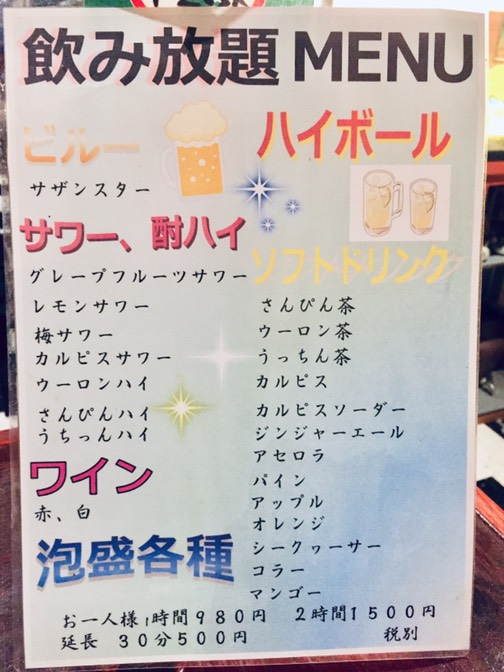 飲み放題 MENU
ビルー
サザンスター
サワー、酎ハイ
グレープフルーツサワー
レモンサワー
梅サワー
カルピスサワー
ウーロンハイ
さんぴんハイ
うちっんハイ
ワイン
赤、白
泡盛各種
ハイボール
ソフトドリンク
さんぴん茶
ウーロン茶
うっちん茶
カルピス
カルピスソーダー
ジンジャーエール
アセロラ
パイン
アップル
オレンジ
シークヮーサー
コーラー
マンゴー
お一人様1時間980円 2時間1500円
延長 30分500円 税別